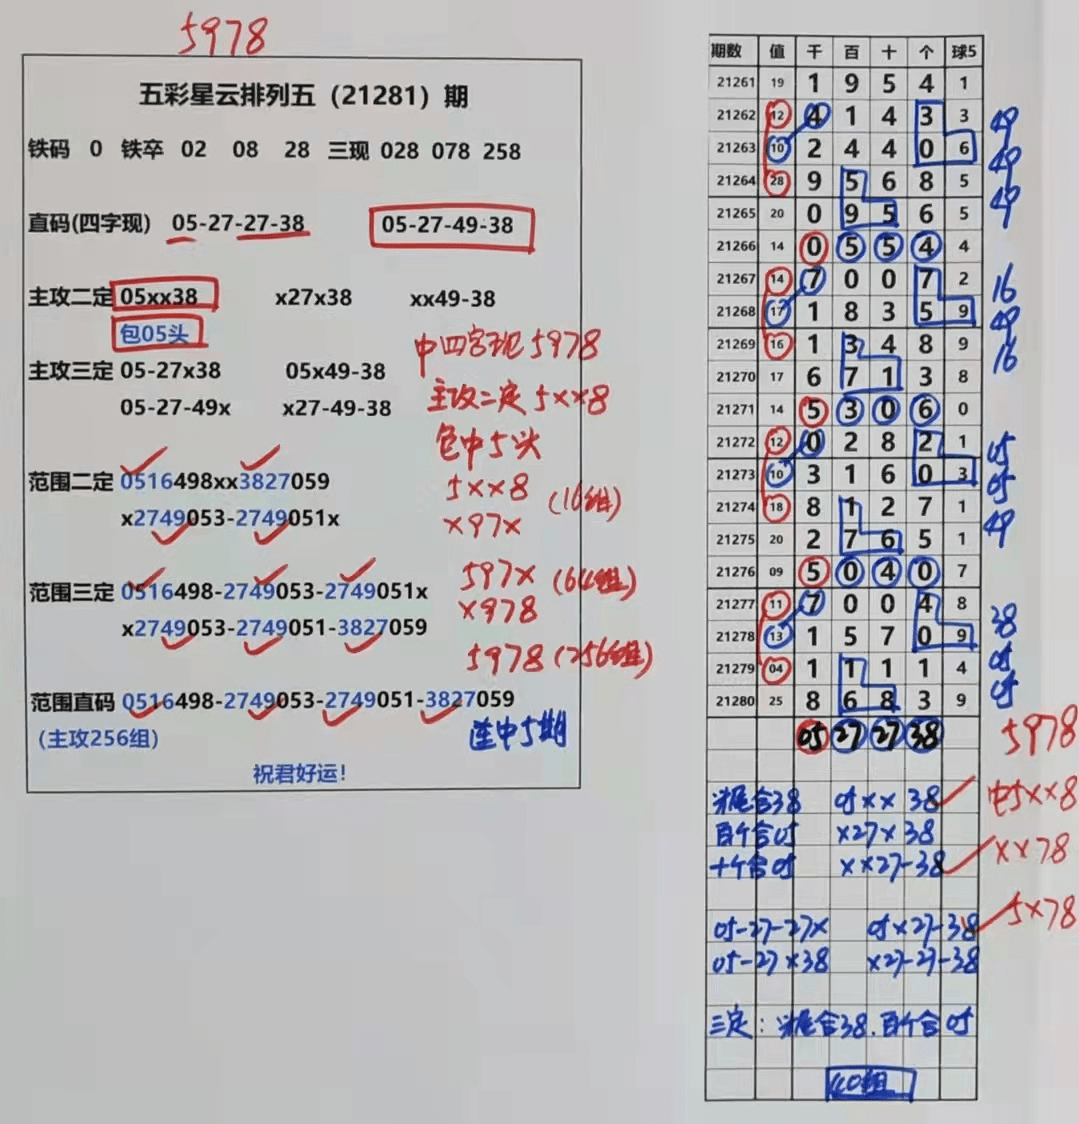 5978
五彩星云排列五（21281）期
铁码 0 铁卒 02 08 28 三现 028 078 258
直码(四字现) 05-27-27-38 05-27-49-38
主攻二定 05xx38 x27x38 xx49-38
包05头
中四字现5978
主攻三定 05-27x38 05x49-38
主攻二定5xx8
05-27-49x x27-49-38
包中5头
范围二定 0516498xx3827059
5xx8 (16组)
x2749053-2749051x
x97x
范围三定 0516498-2749053-2749051x
597x (64组)
x2749053-2749051-3827059
x978
5978 (256组)
范围直码 0516498-2749053-2749051-3827059
(主攻256组)
连中5期
祝君好运！
期数 值 千 百 十 个 球5
21261 19 1 9 5 4 1
21262 12 4 1 4 3 3 49
21263 10 2 4 4 0 6 49
21264 28 9 5 6 8 5 49
21265 20 0 9 5 6 5
21266 14 0 5 5 4 4
21267 14 7 0 0 7 2 16
21268 17 1 8 3 5 9 49
21269 16 1 3 4 8 9 16
21270 17 6 7 1 3 8
21271 14 5 3 0 6 0
21272 12 0 2 8 2 1 05
21273 10 3 1 6 0 3 05
21274 18 8 1 2 7 1 49
21275 20 2 7 6 5 1
21276 09 5 0 4 0 7
21277 11 7 0 0 4 8 38
21278 13 1 5 7 0 9
21279 04 1 1 1 1 4 05
21280 25 8 6 8 3 9 05
05 27 27 38 5978
头尾合38 05xx 38 中5xx8
百个合05 x27x38
十个合05 xx27-38 xx78
05-27-27x 05x27-38 5x78
05-27x38 x27-27-38
三定：头尾合38.百个合05
40组